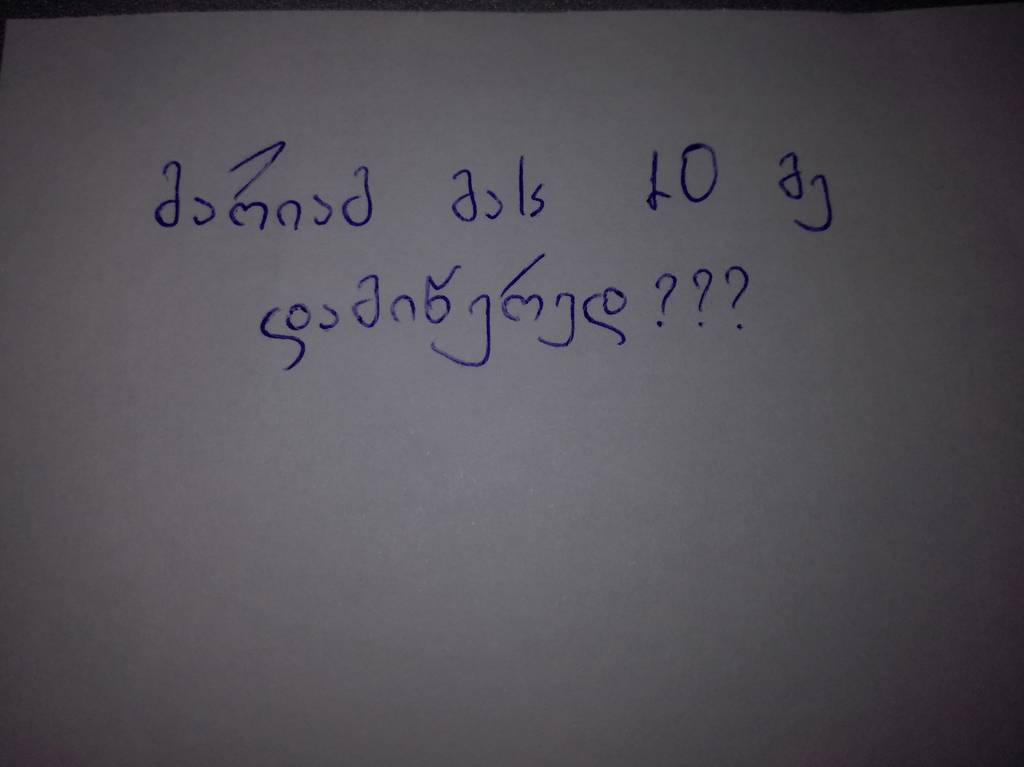 მარიამ მას 10 მე
დამიწერედ???